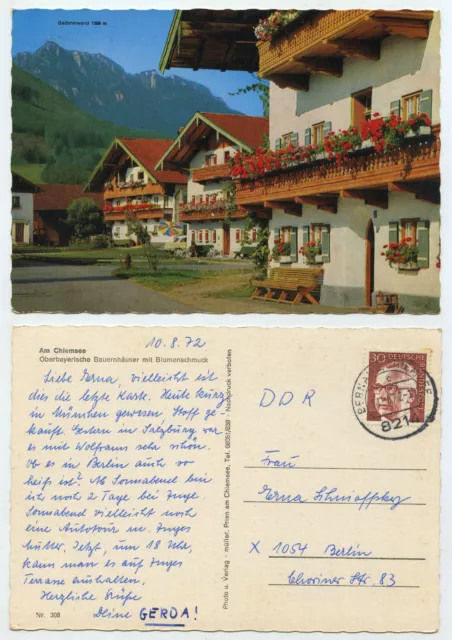 Gedererwand 1399 m
Am Chiemsee
Oberbayerische Bauernhäuser mit Blumenschmuck
10.8.72
Liebe Erna, vielleicht ist
dies die letzte Karte. Heute kurz
in München gewesen Stoff ge-
kauft. Gestern in Salzburg war
es mit Wolframs sehr schön.
Ob es in Berlin auch so
heiß ist? Ab Sonnabend bin
ich noch 2 Tage bei Inge.
Sonnabend vielleicht noch
eine Autotour m. Inges
Mutter. Jetzt, um 18 Uhr,
kann man es auf Inges
Terasse aushalten.
Herzliche Grüße
Deine GERDA!
Nr. 308
Photo u. Verlag - müller, Prien am Chiemsee, Tel. 08051/839 - Nachdruck verboten
DDR
30
DEUTSCHE BUNDESPOST
821
Frau
Erna
X 1054 Berlin
Choriner Str. 83